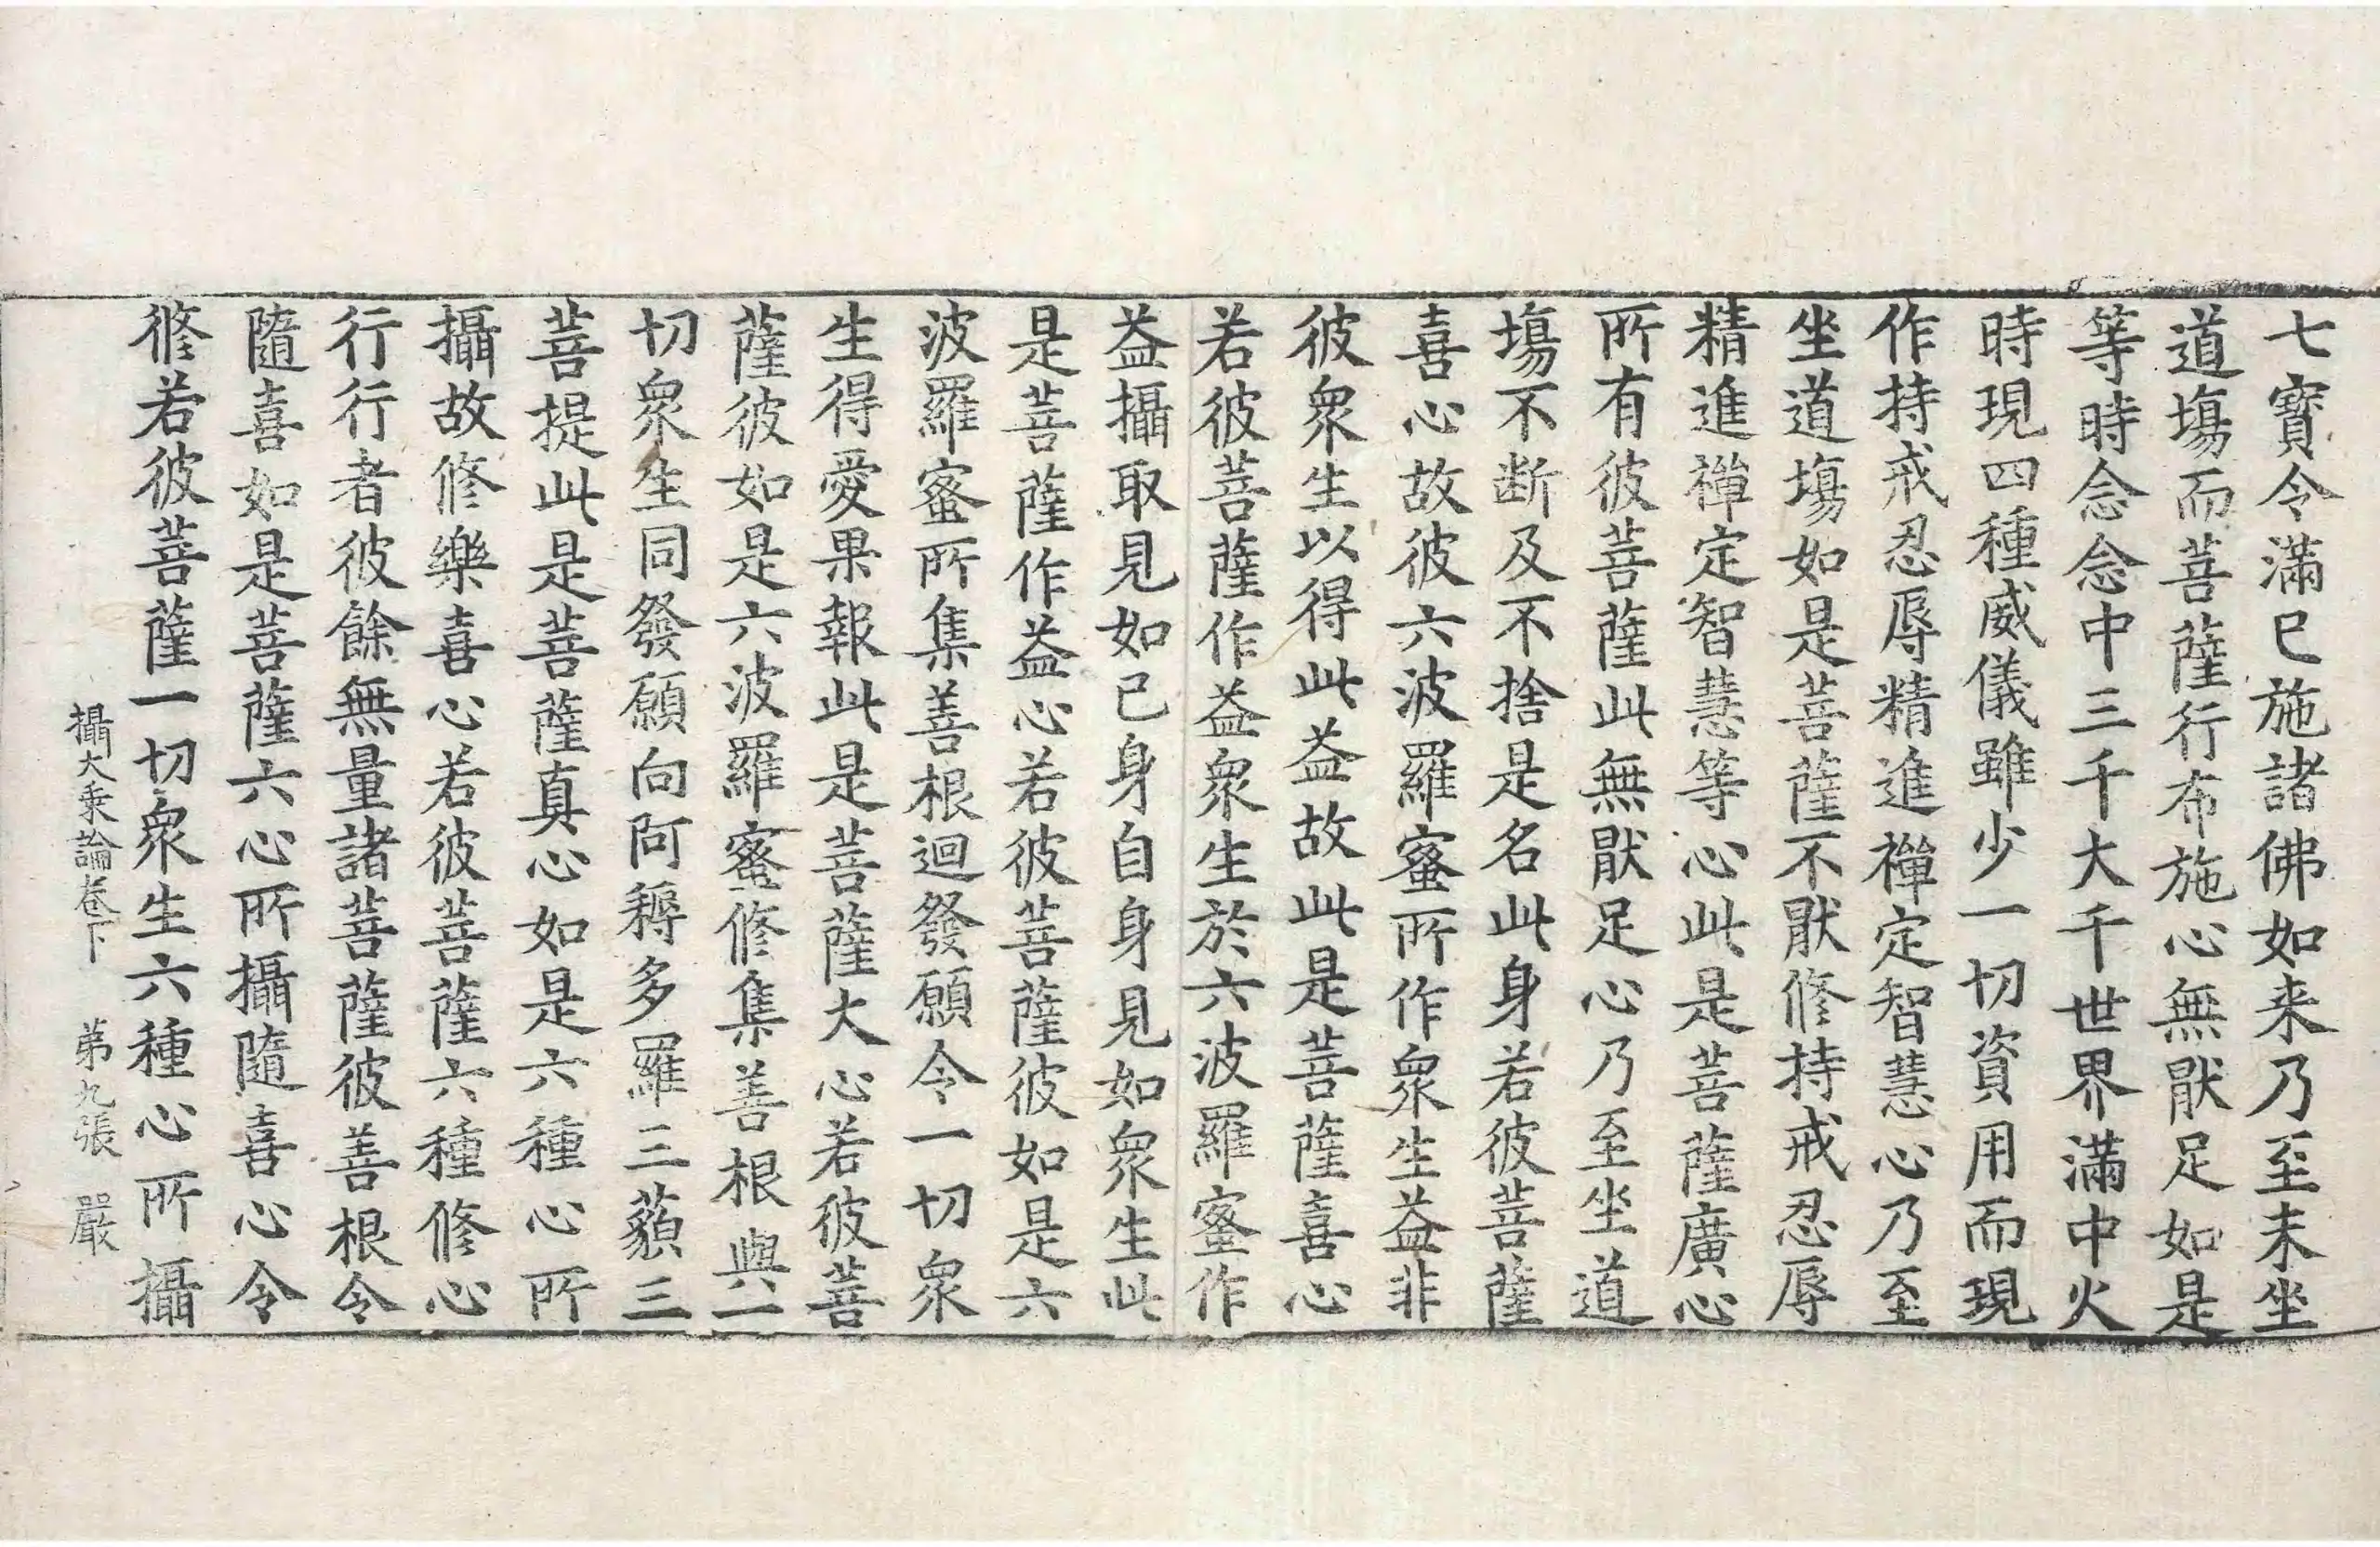 七寶令滿已施諸佛如来乃至未坐
道塲而菩薩行布施心無猒足如是
等時念念中三千大千世界滿中火
時現四種威儀雖少一切資用而現
作持戒忍辱精進禪定智慧心乃至
坐道塲如是菩薩不猒修持戒忍辱
精進禪定智慧等心此是菩薩廣心
所有彼菩薩此無猒足心乃至坐道
塲不断及不捨是名此身若彼菩薩
喜心故彼六波羅蜜所作衆生益非
彼衆生以得此益故此是菩薩喜心
若彼菩薩作益衆生於六波羅蜜作
益攝取見如已身自身見如衆生此
是菩薩作益心若彼菩薩彼如是六
波羅蜜所集善根迴發願令一切衆
生得愛果報此是菩薩大心若彼菩
薩彼如是六波羅蜜修集善根與一
切衆生同發願向阿耨多羅三藐三
菩提此是菩薩真心如是六種心所
攝故修樂喜心若彼菩薩六種修心
行行者彼餘無量諸菩薩彼善根令
隨喜如是菩薩六心所攝隨喜心令
修若彼菩薩一切衆生六種心所攝
攝大乘論卷下　苐九張　嚴